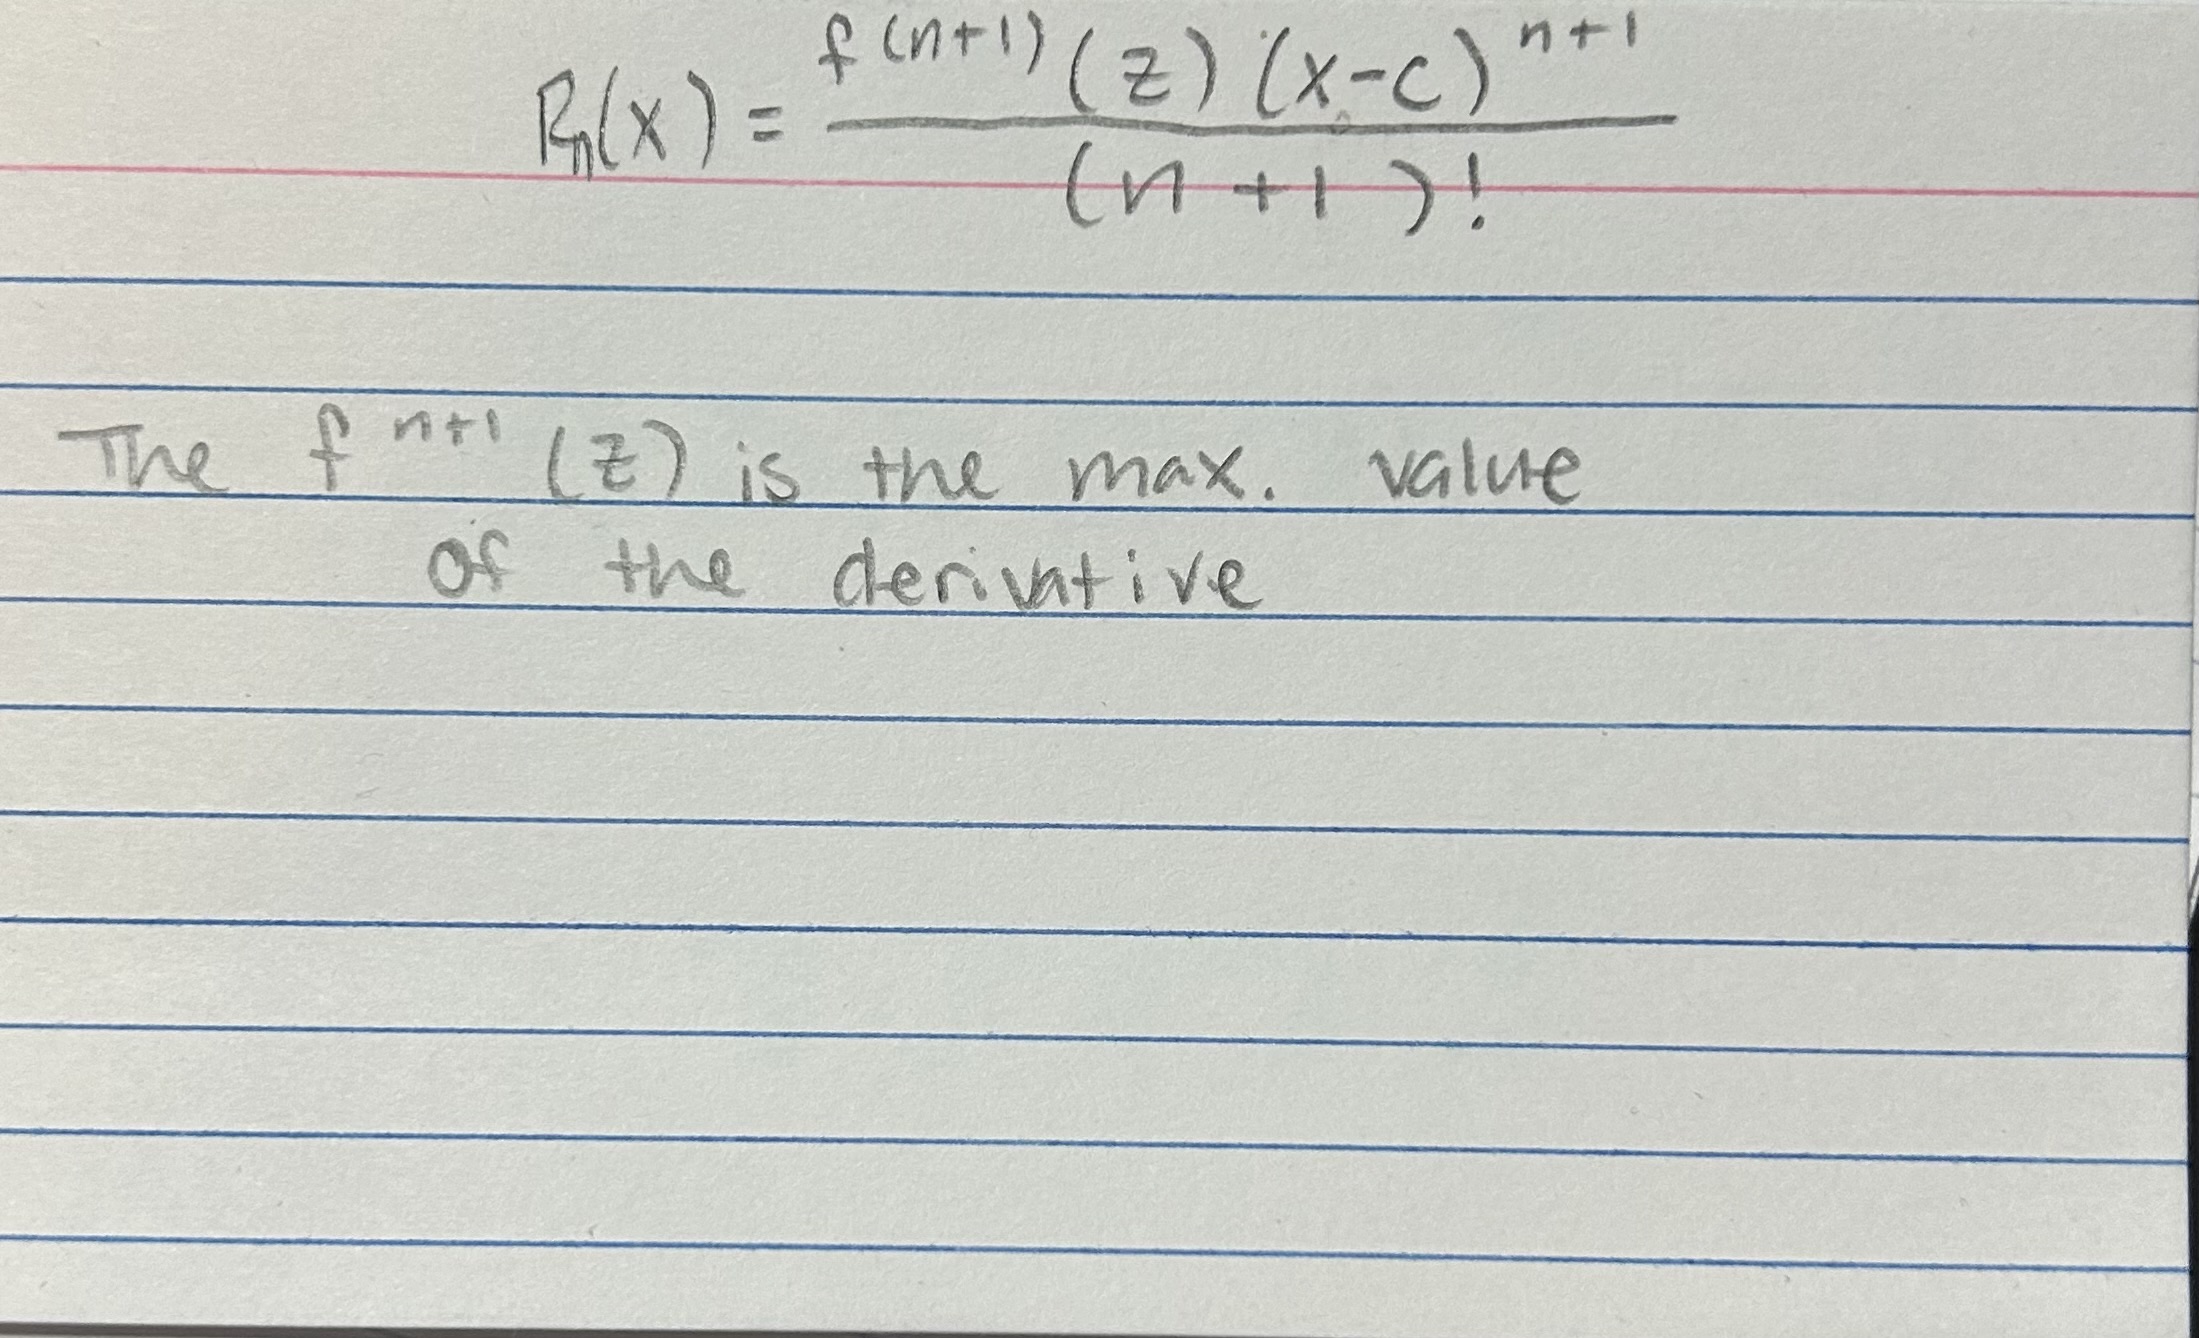 Rn(x) = f^(n+1)(z)(x-c)^n+1 / (n+1)!
The f^n+1(z) is the max. value
of the derivative